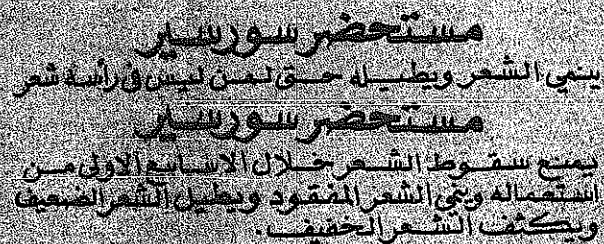 مستحضر سورسير
ينمي الشعر ويطيله حتى لمن ليس في رأسه شعر
مستحضر سورسير
يمنع سقوط الشعر خلال الاسابيع الاولى من
استعماله وينمي الشعر المفقود ويطيل الشعر الضعيف
ويكثف الشعر الخفيف.